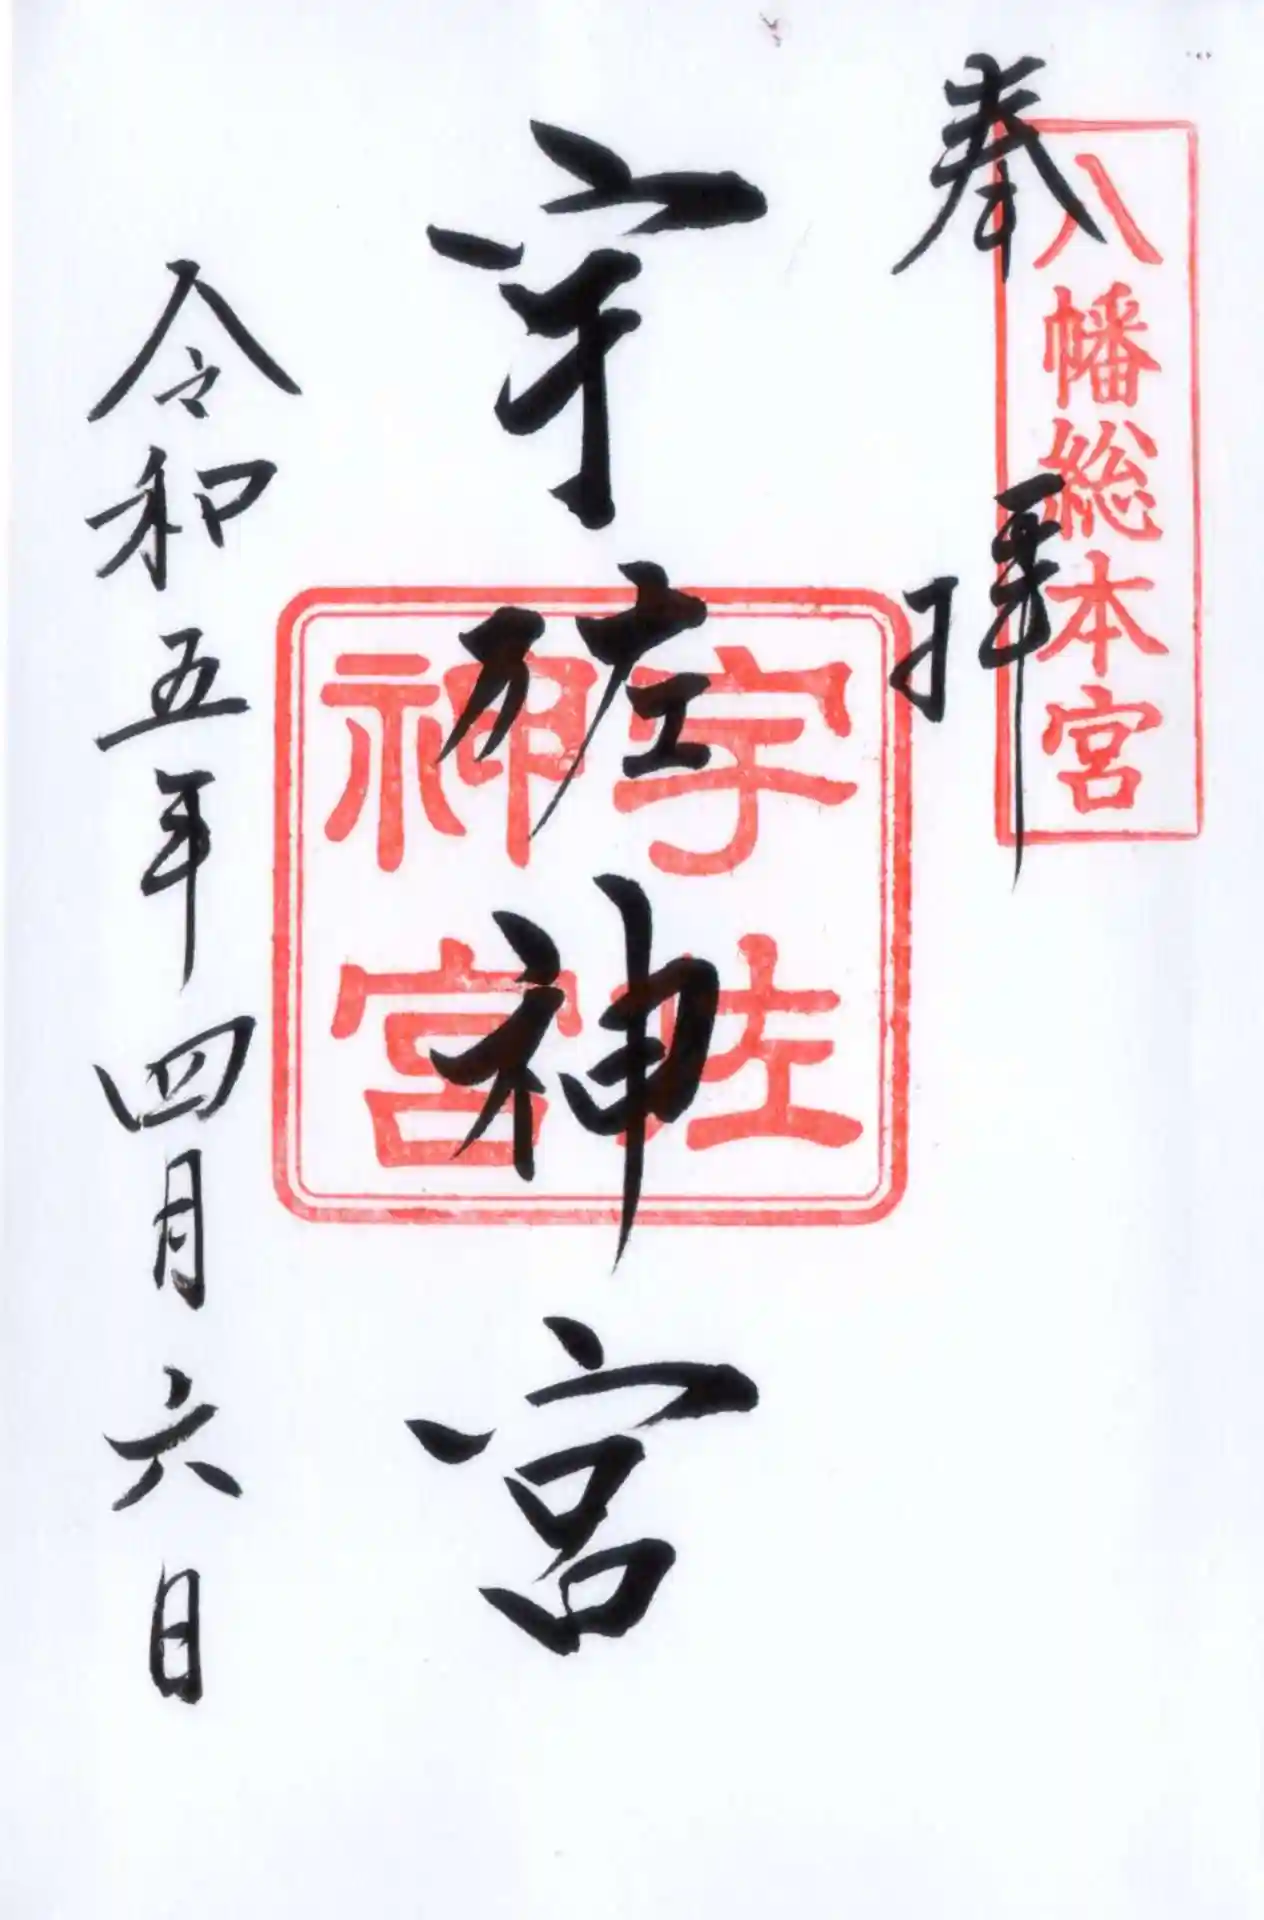 奉拝
八幡総本宮
宇佐神宮
宇佐
神宮
令和五年四月六日